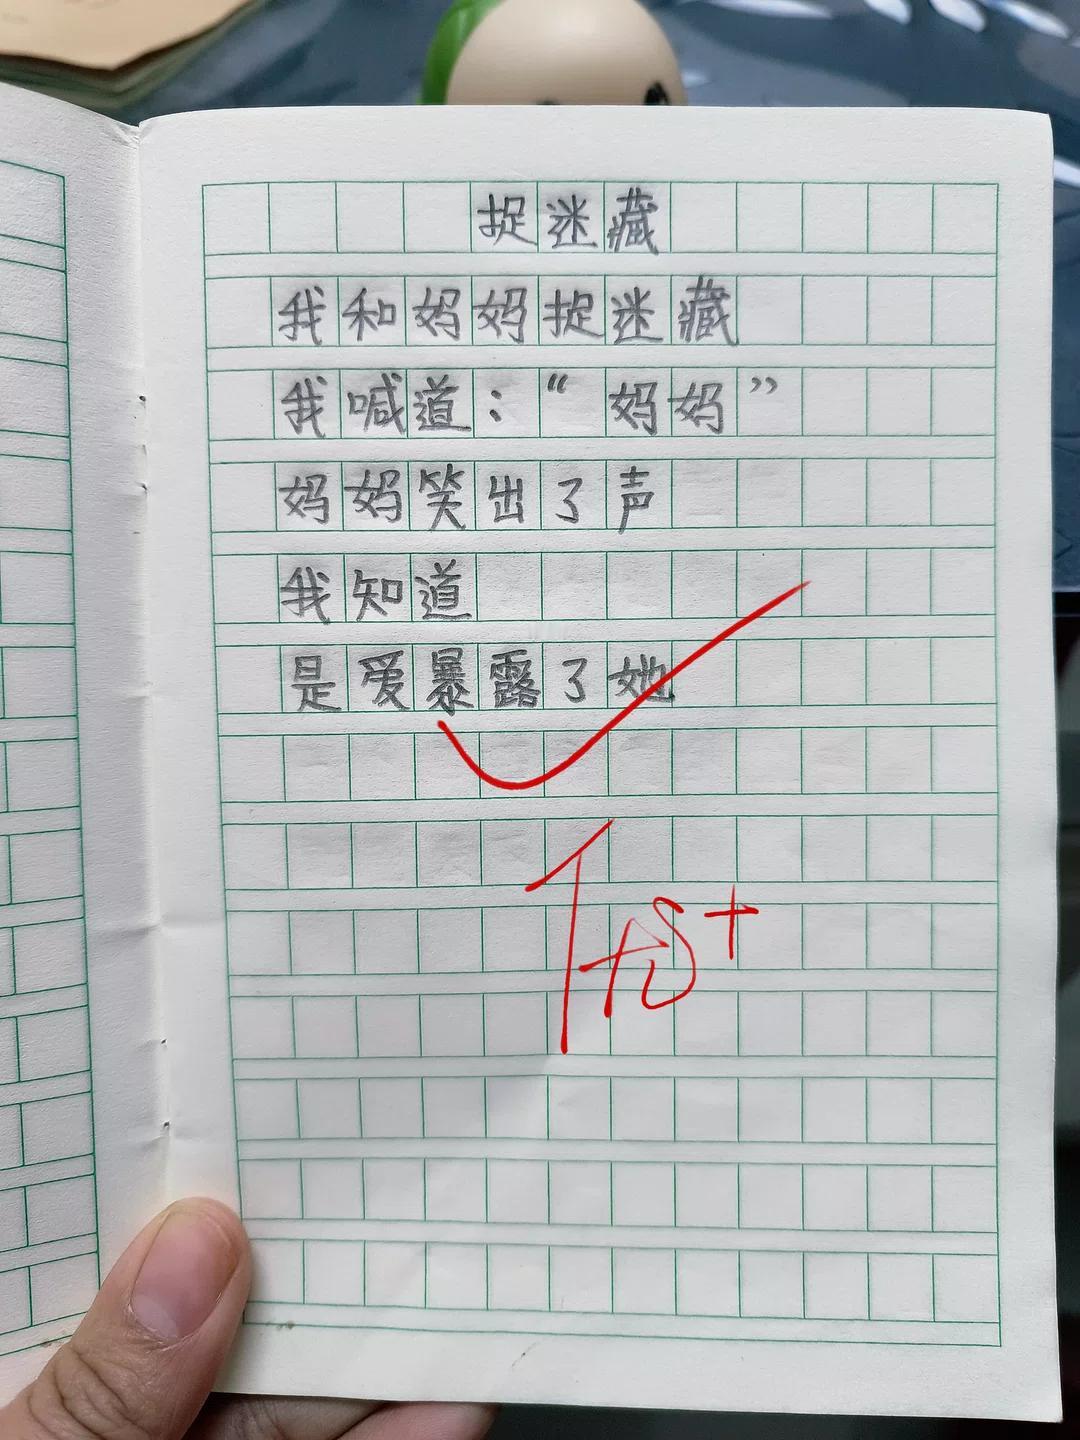 捉迷藏
我和妈妈捉迷藏
我喊道：“妈妈”
妈妈笑出了声
我知道
是爱暴露了她